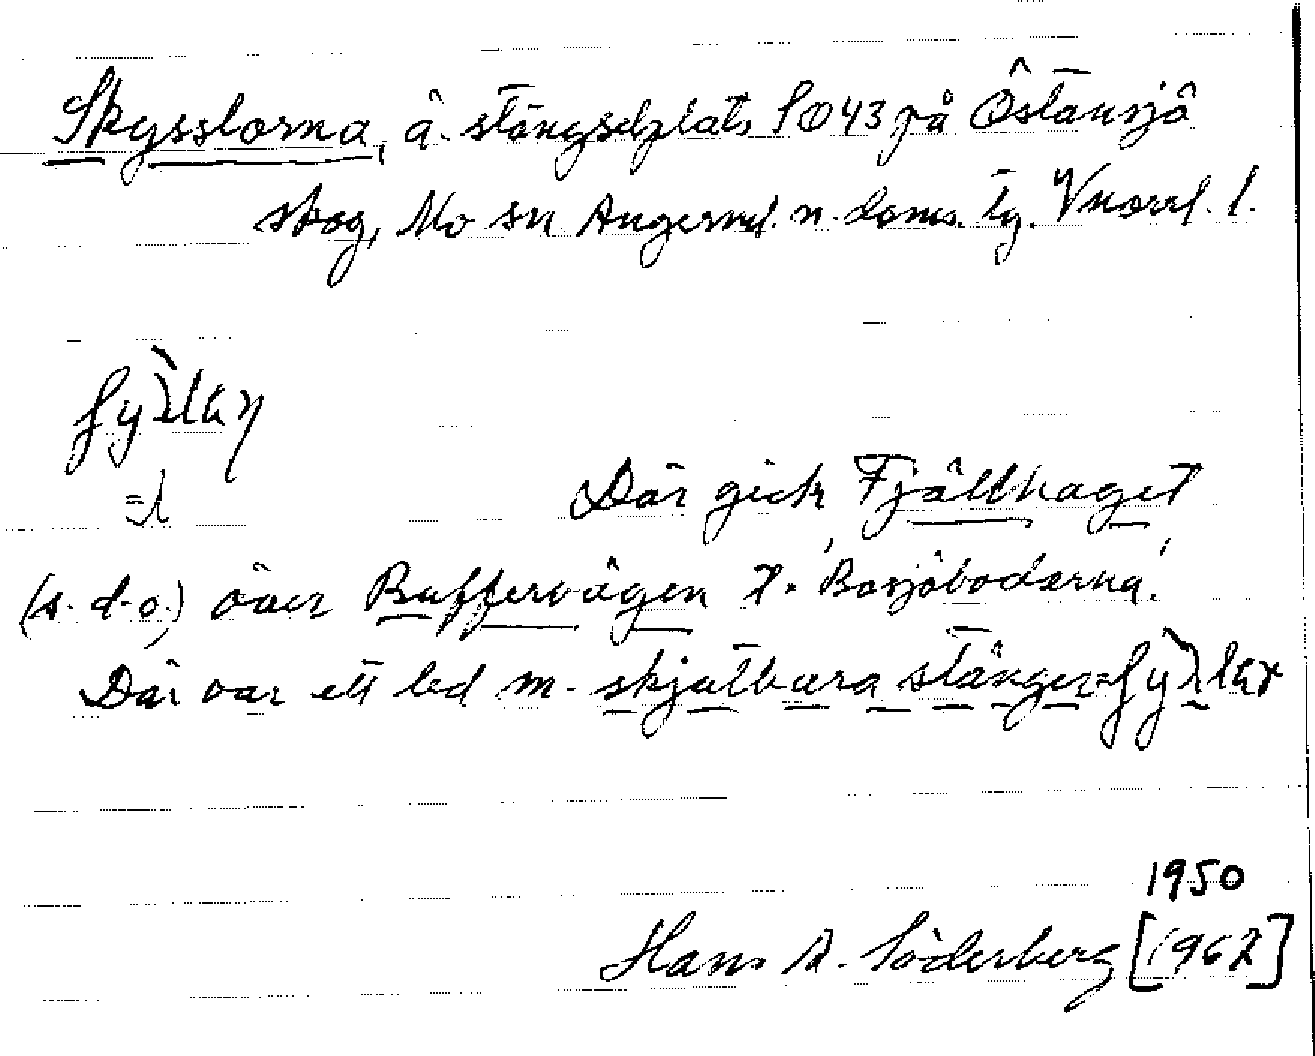 Skysslorna, ä. stängselplats SO 43 på Östansjö
skog, Mo sn Ångerml. n. doms. tg. Vnorrl. l.
Där gick Fjällhaget
(s. d. o.) över Buffervägen t. 'Bosjöbodarna'.
Där var ett led m. skjutbara stänger =
1950
Hans A. Söderberg [1962]